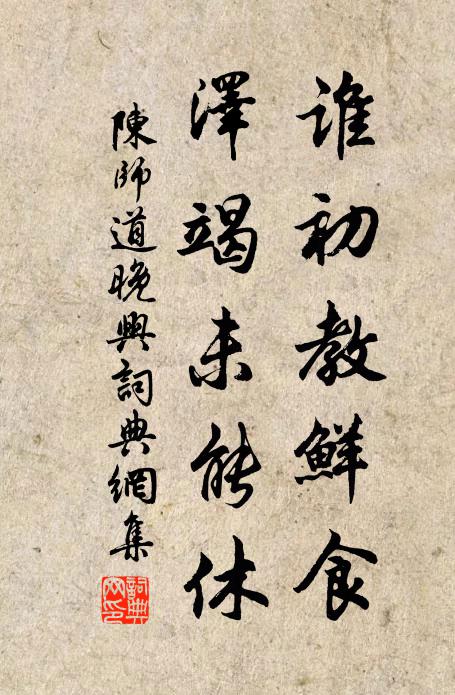 誰初教鮮食
澤竭未能休
陳師道晚興詞典網集
詞典網印